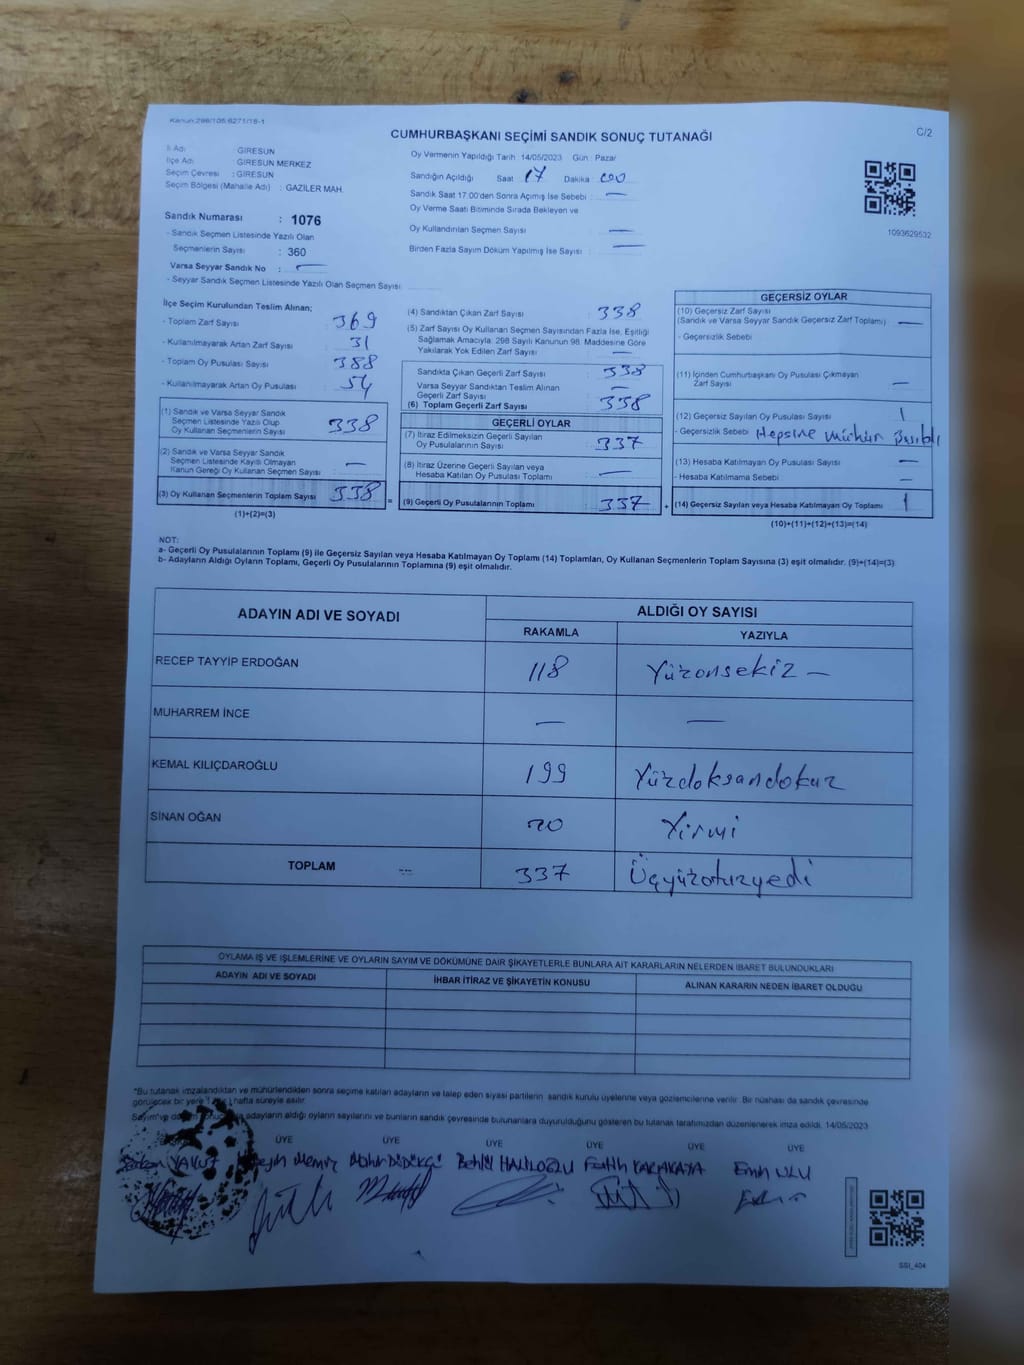 Kanun:298/105:6271/18-1
CUMHURBAŞKANI SEÇİMİ SANDIK SONUÇ TUTANAĞI
C/2
İl Adı : GİRESUN
İlçe Adı : GİRESUN MERKEZ
Seçim Çevresi : GİRESUN
Seçim Bölgesi (Mahalle Adı) : GAZİLER MAH.
Sandık Numarası : 1076
- Sandık Seçmen Listesinde Yazılı Olan
Seçmenlerin Sayısı : 360
Varsa Seyyar Sandık No : —
- Seyyar Sandık Seçmen Listesinde Yazılı Olan Seçmen Sayısı:
Oy Vermenin Yapıldığı Tarih: 14/05/2023 Gün : Pazar
Sandığın Açıldığı Saat 17 Dakika 00
Sandık Saat 17.00'den Sonra Açımış İse Sebebi : —
Oy Verme Saati Bitiminde Sırada Bekleyen ve
Oy Kullandırılan Seçmen Sayısı —
Birden Fazla Sayım Döküm Yapılmış İse Sayısı : —
1093629532
İlçe Seçim Kurulundan Teslim Alınan;
- Toplam Zarf Sayısı 369
- Kullanılmayarak Artan Zarf Sayısı 31
- Toplam Oy Pusulası Sayısı 388
- Kullanılmayarak Artan Oy Pusulası 54
(1) Sandık ve Varsa Seyyar Sandık
Seçmen Listesinde Yazılı Olup
Oy Kullanan Seçmenlerin Sayısı 338
(2) Sandık ve Varsa Seyyar Sandık
Seçmen Listesinde Kayıtlı Olmayan
Kanun Gereği Oy Kullanan Seçmen Sayısı —
(3) Oy Kullanan Seçmenlerin Toplam Sayısı 338
(1)+(2)=(3)
(4) Sandıktan Çıkan Zarf Sayısı 338
(5) Zarf Sayısı Oy Kullanan Seçmen Sayısından Fazla İse, Eşitliği
Sağlamak Amacıyla; 298 Sayılı Kanunun 98. Maddesine Göre
Yakılarak Yok Edilen Zarf Sayısı —
Sandıkta Çıkan Geçerli Zarf Sayısı 338
Varsa Seyyar Sandıktan Teslim Alınan
Geçerli Zarf Sayısı —
(6) Toplam Geçerli Zarf Sayısı 338
GEÇERLİ OYLAR
(7) İtiraz Edilmeksizin Geçerli Sayılan
Oy Pusulalarının Sayısı 337
(8) İtiraz Üzerine Geçerli Sayılan veya
Hesaba Katılan Oy Pusulası Toplamı —
= (9) Geçerli Oy Pusulalarının Toplamı 337
GEÇERSİZ OYLAR
(10) Geçersiz Zarf Sayısı
(Sandık ve Varsa Seyyar Sandık Geçersiz Zarf Toplamı) —
- Geçersizlik Sebebi
(11) İçinden Cumhurbaşkanı Oy Pusulası Çıkmayan
Zarf Sayısı —
(12) Geçersiz Sayılan Oy Pusulası Sayısı 1
- Geçersizlik Sebebi Hepsine mühür Basıldı
(13) Hesaba Katılmayan Oy Pusulası Sayısı —
- Hesaba Katılmama Sebebi —
+ (14) Geçersiz Sayılan veya Hesaba Katılmayan Oy Toplamı 1
(10)+(11)+(12)+(13)=(14)
NOT:
a- Geçerli Oy Pusulalarının Toplamı (9) ile Geçersiz Sayılan veya Hesaba Katılmayan Oy Toplamı (14) Toplamları, Oy Kullanan Seçmenlerin Toplam Sayısına (3) eşit olmalıdır. (9)+(14)=(3)
b- Adayların Aldığı Oyların Toplamı, Geçerli Oy Pusulalarının Toplamına (9) eşit olmalıdır.
ADAYIN ADI VE SOYADI
ALDIĞI OY SAYISI
RAKAMLA YAZIYLA
RECEP TAYYİP ERDOĞAN 118 Yüzonsekiz —
MUHARREM İNCE — —
KEMAL KILIÇDAROĞLU 199 Yüzdoksandokuz
SİNAN OĞAN 20 Yirmi
TOPLAM -- 337 Üçyüzotuzyedi
OYLAMA İŞ VE İŞLEMLERİNE VE OYLARIN SAYIM VE DÖKÜMÜNE DAİR ŞİKAYETLERLE BUNLARA AİT KARARLARIN NELERDEN İBARET BULUNDUKLARI
ADAYIN ADI VE SOYADI İHBAR İTİRAZ VE ŞİKAYETİN KONUSU ALINAN KARARIN NEDEN İBARET OLDUĞU
*Bu tutanak imzalandıktan ve mühürlendikten sonra seçime katılan adayların ve talep eden siyasi partilerin sandık kurulu üyelerine veya gözlemcilerine verilir. Bir nüshası da sandık çevresinde
görülecek bir yere hafta süreyle asılır.
adayların aldığı oyların sayılarını ve bunların sandık çevresinde bulunanlara duyurulduğunu gösteren bu tutanak tarafımızdan düzenlenerek imza edildi. 14/05/2023
ÜYE ÜYE ÜYE ÜYE ÜYE ÜYE
YAKUT Behlül HALİLOĞLU Fatih KARAKAYA Emin ULU
SSI_404